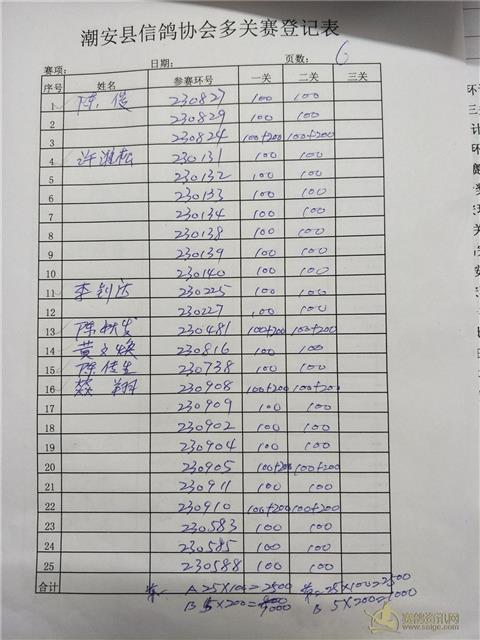 潮安县信鸽协会多关赛登记表
赛项: 日期: 页数: 6
序号 姓名 参赛环号 一关 二关 三关
1 陈俊 230827 100 100
2 230829 100 100
3 230824 100+200 100+200
4 许淮松 230131 100 100
5 230132 100 100
6 230133 100 100
7 230134 100 100
8 230138 100 100
9 230139 100 100
10 230140 100 100
11 李钊达 230225 100 100
12 230227 100 100
13 陈 230481 100+200 100+200
14 黄文焕 230816 100 100
15 陈佳生 230738 100 100
16 翔 230908 100+200 100+200
17 230909 100 100
18 230902 100 100
19 230904 100 100
20 230905 100+200 100+200
21 230911 100 100
22 230910 100+200 100+200
23 230583 100 100
24 230585 100 100
25 230588 100 100
合计 A 25×100=2500 25×100=2500
B 5×200=1000 B 5×200=1000
赛鸽资讯网
www.saige.com
环
三
计
环
关